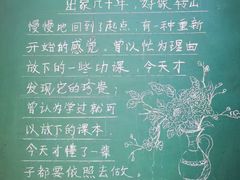 出家几十年，好像转山
慢慢地回到了起点，有一种重新
开始的感觉。曾以忙为理由
放下的一些功课，今天才
发现它的珍贵；
曾认为学过就可
以放下的课本，
今天才懂了一辈
子都要依照去做。